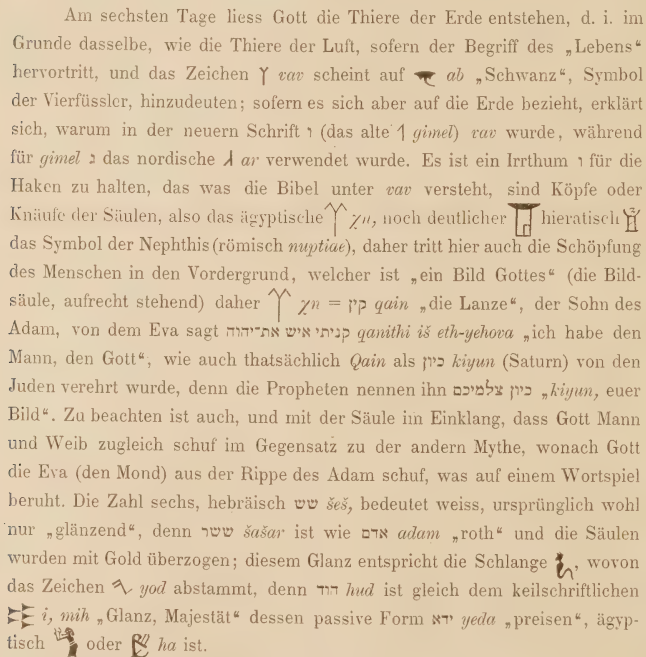 Am sechsten Tage liess Gott die Thiere der Erde entstehen, d. i. im
Grunde dasselbe, wie die Thiere der Luft, sofern der Begriff des „Lebens“
hervortritt, und das Zeichen Y vav scheint auf ab „Schwanz“, Symbol
der Vierfüssler, hinzudeuten; sofern es sich aber auf die Erde bezieht, erklärt
sich, warum in der neuern Schrift ו (das alte gimel) vav wurde, während
für gimel נ das nordische ar verwendet wurde. Es ist ein Irrthum ו für die
Haken zu halten, das was die Bibel unter vav versteht, sind Köpfe oder
Knäufe der Säulen, also das ägyptische χn, noch deutlicher hieratisch
das Symbol der Nephthis (römisch nuptiae), daher tritt hier auch die Schöpfung
des Menschen in den Vordergrund, welcher ist „ein Bild Gottes“ (die Bild-
säule, aufrecht stehend) daher χn = קין qain „die Lanze“, der Sohn des
Adam, von dem Eva sagt קניתי איש את־יהוה qanithi iš eth-yehova „ich habe den
Mann, den Gott“, wie auch thatsächlich Qain als כיון kiyun (Saturn) von den
Juden verehrt wurde, denn die Propheten nennen ihn כיון צלמיכם „kiyun, euer
Bild“. Zu beachten ist auch, und mit der Säule im Einklang, dass Gott Mann
und Weib zugleich schuf im Gegensatz zu der andern Mythe, wonach Gott
die Eva (den Mond) aus der Rippe des Adam schuf, was auf einem Wortspiel
beruht. Die Zahl sechs, hebräisch שש šeš, bedeutet weiss, ursprünglich wohl
nur „glänzend“, denn ששר šašar ist wie אדם adam „roth“ und die Säulen
wurden mit Gold überzogen; diesem Glanz entspricht die Schlange , wovon
das Zeichen yod abstammt, denn הוד hud ist gleich dem keilschriftlichen
i, mih „Glanz, Majestät“ dessen passive Form ידא yeda „preisen“, ägyp-
tisch oder ha ist.